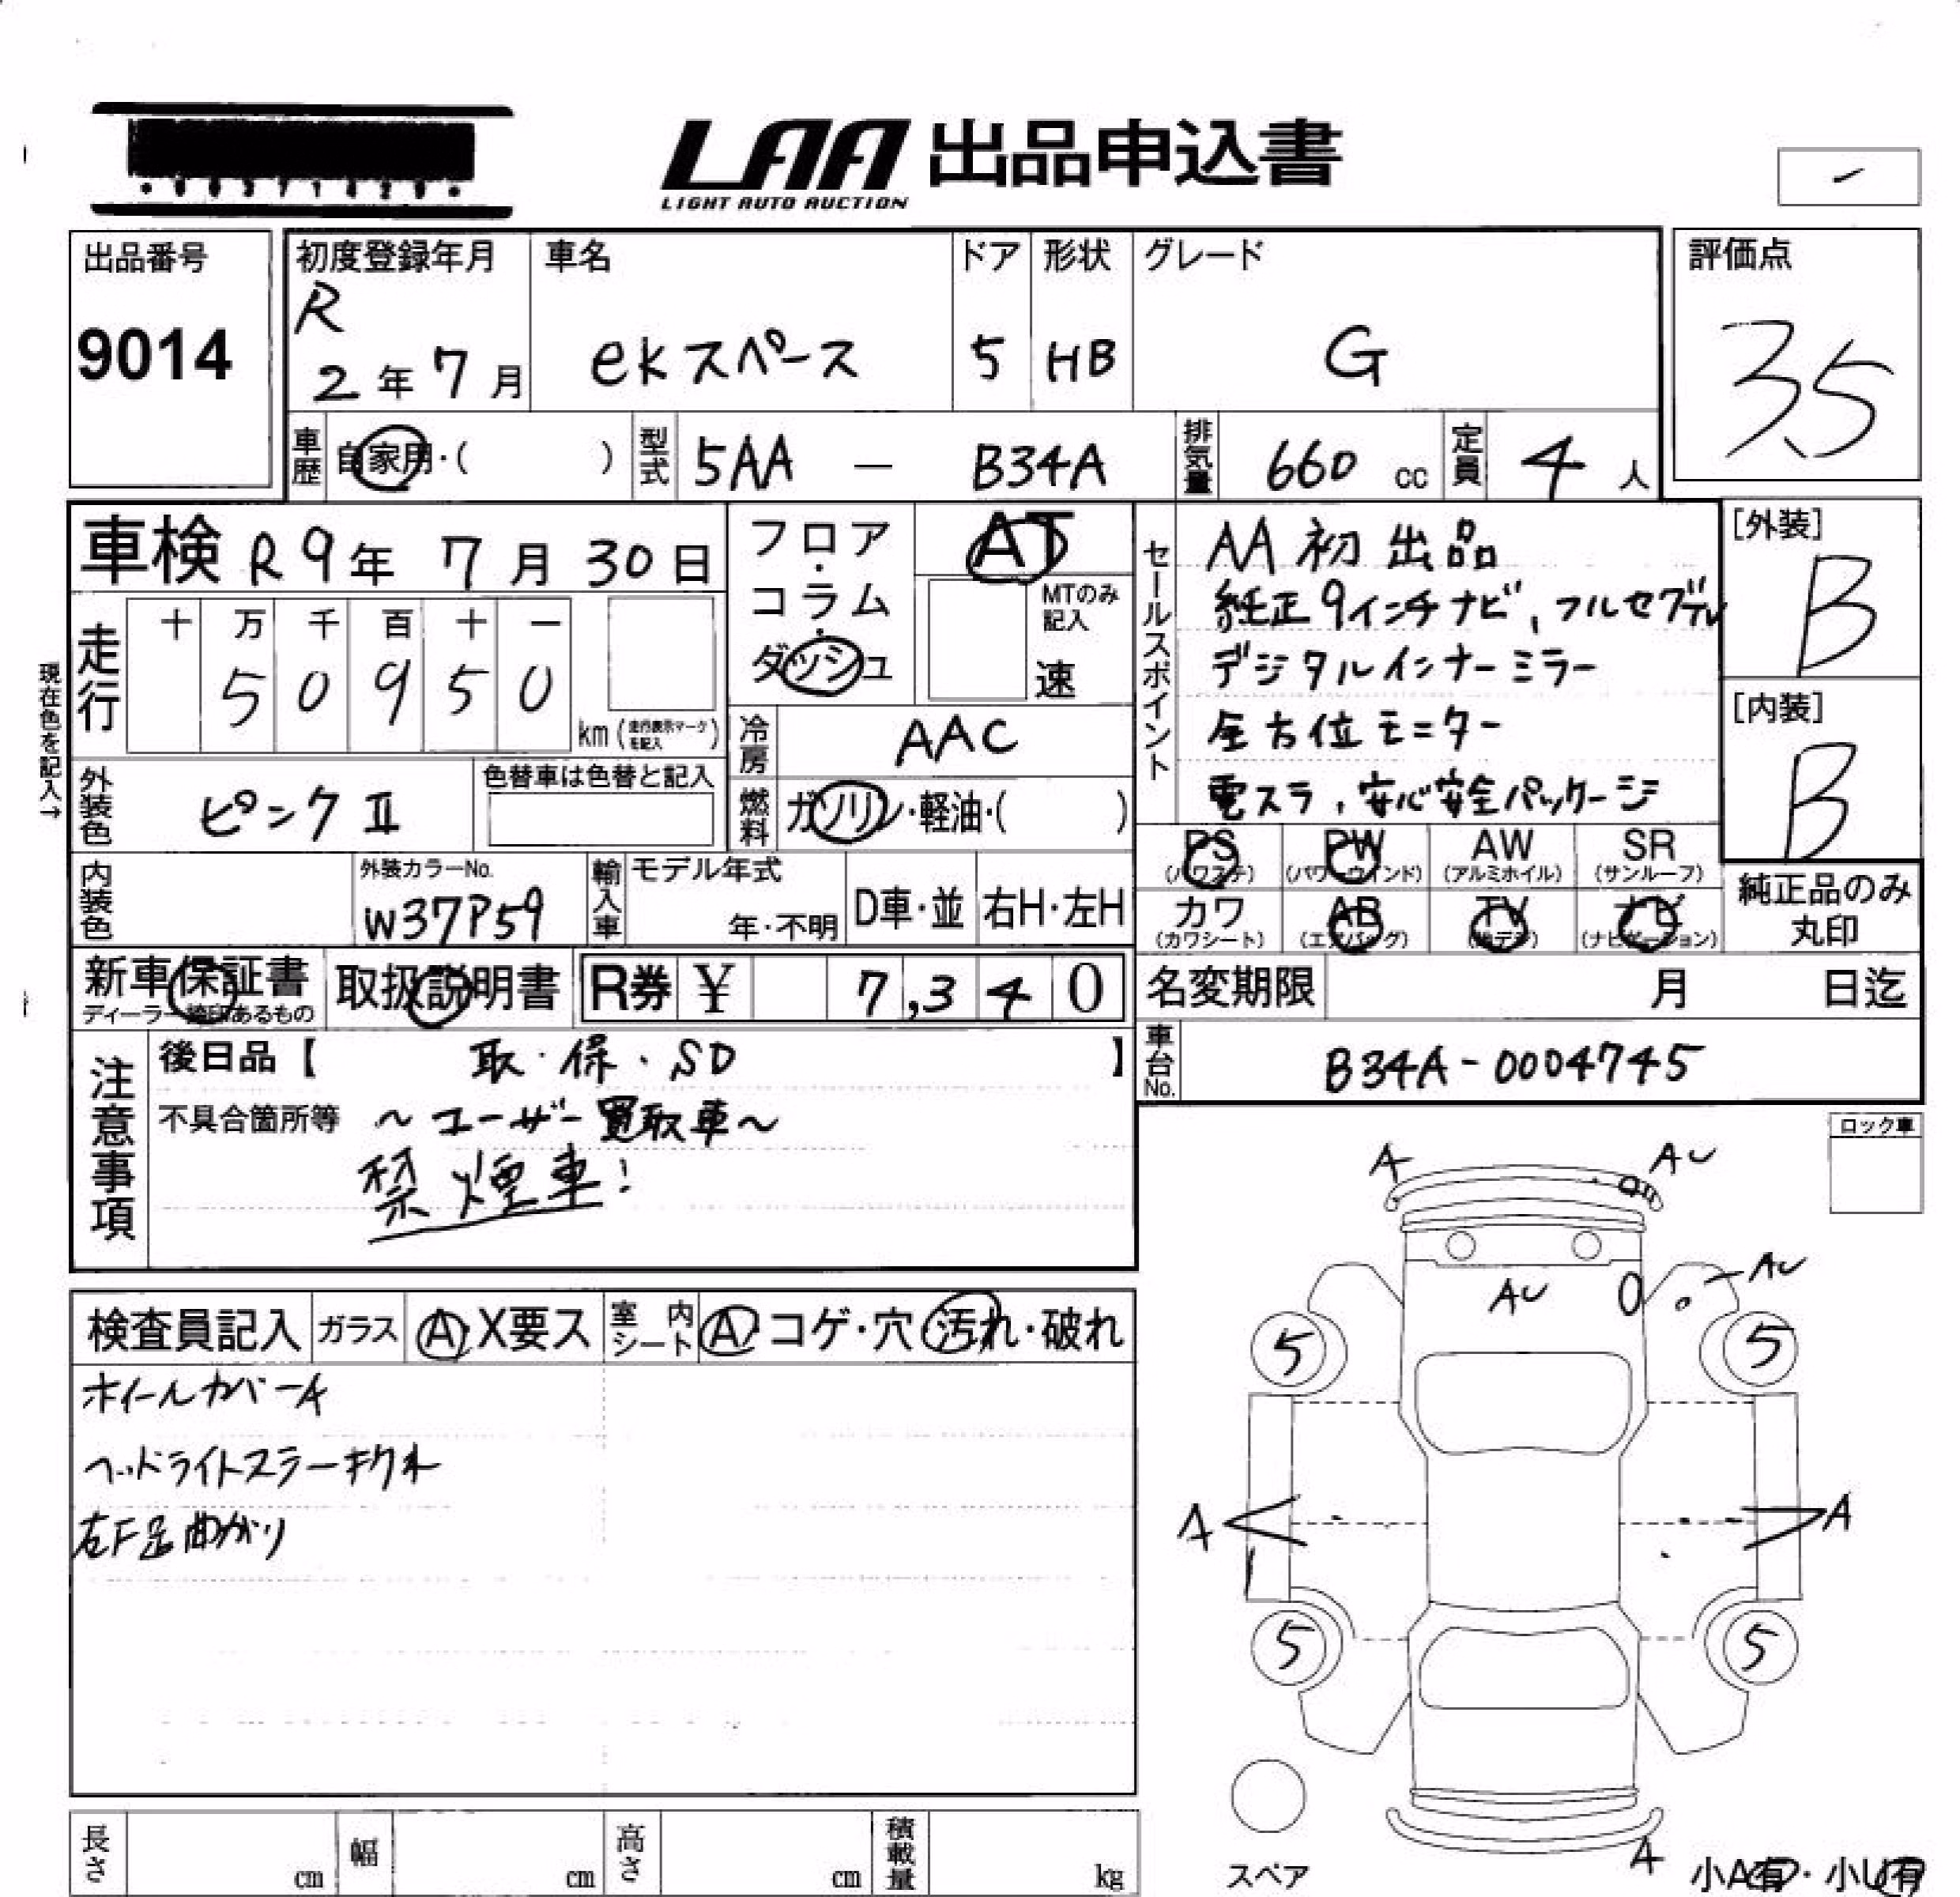 LAA 出品申込書
LIGHT AUTO AUCTION
出品番号
9014
初度登録年月
R
2年7月
車名
ekスペース
ドア
5
形状
HB
グレード
G
評価点
3.5
車歴 自家用・( )
型式 5AA — B34A
排気量 660 cc
定員 4人
車検 R9年7月30日
現在色を記入→
走行
十 万 千 百 十 一
5 0 9 5 0
km (走行表示マークを記入)
フロア・コラム・ダッシュ
AT
MTのみ記入
速
冷房 AAC
燃料 ガソリン・軽油・( )
セールスポイント
AA初出品
純正9インチナビ、フルセグTV
デジタルインナーミラー
全方位モニター
電スラ、安心安全パッケージ
[外装]
B
[内装]
B
外装色 ピンクⅡ
色替車は色替と記入
内装色
外装カラーNo.
W37P59
輸入車
モデル年式
年・不明
D車・並
右H・左H
PS (パワステ)
PW (パワーウインド)
AW (アルミホイル)
SR (サンルーフ)
カワ (カワシート)
AB (エアバッグ)
TV (地デジ)
ナビ (ナビゲーション)
純正品のみ
丸印
新車保証書
ディーラー捺印あるもの
取扱説明書
R券 ¥ 7,340
名変期限 月 日迄
車台No. B34A-0004745
注意事項
後日品【 取・保・SD 】
不具合箇所等 〜ユーザー買取車〜
禁煙車!
ロック車
検査員記入
ガラス A・X要ス
室内シート A・コゲ・穴・汚れ・破れ
ホイールカバーA
ヘッドライトステーキレ
右F足曲がり
A
AU
AU
AU
5
5
A
A
5
5
A
スペア
小A有・小U有
長さ cm
幅 cm
高さ cm
積載量 kg